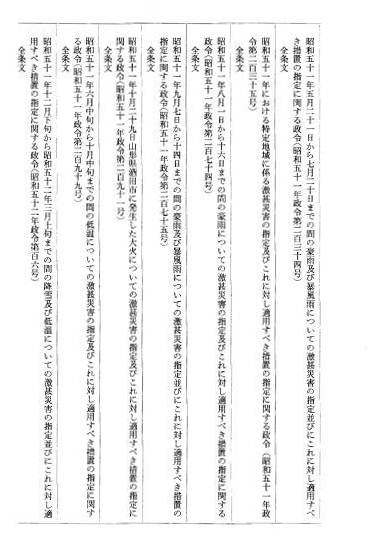 昭和五十一年五月二十一日から七月二十日までの間の豪雨及び暴風雨についての激甚災害の指定並びにこれに対し適用すべ
き措置の指定に関する政令(昭和五十一年政令第二百三十四号)
全条文
昭和五十一年における特定地域に係る激甚災害の指定及びこれに対し適用すべき措置の指定に関する政令(昭和五十一年政
令第二百三十五号)
全条文
昭和五十一年八月一日から十六日までの間の豪雨についての激甚災害の指定及びこれに対し適用すべき措置の指定に関する
政令(昭和五十一年政令第二百七十四号)
全条文
昭和五十一年九月七日から十四日までの間の豪雨及び暴風雨についての激甚災害の指定並びにこれに対し適用すべき措置の
指定に関する政令(昭和五十一年政令第二百七十五号)
全条文
昭和五十一年十月二十九日山形県酒田市に発生した大火についての激甚災害の指定及びこれに対し適用すべき措置の指定に
関する政令(昭和五十一年政令第二百九十一号)
全条文
昭和五十一年六月中旬から十月中旬までの間の低温についての激甚災害の指定及びこれに対し適用すべき措置の指定に関す
る政令(昭和五十一年政令第二百九十九号)
全条文
昭和五十一年十二月下旬から昭和五十二年三月上旬までの間の降雪及び低温についての激甚災害の指定並びにこれに対し適
用すべき措置の指定に関する政令(昭和五十二年政令第百六号)
全条文